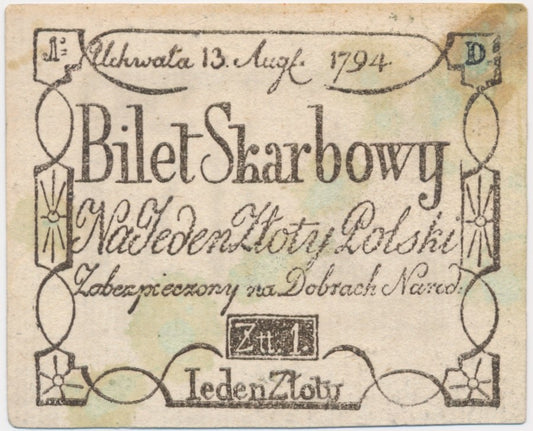 1: Uchwała 13. Augſ. 1794. D.
Bilet Skarbowy
Na Jeden Złoty Polski
Zabezpieczony na Dobrach Narod:
Złł. 1.
Ieden Złoty